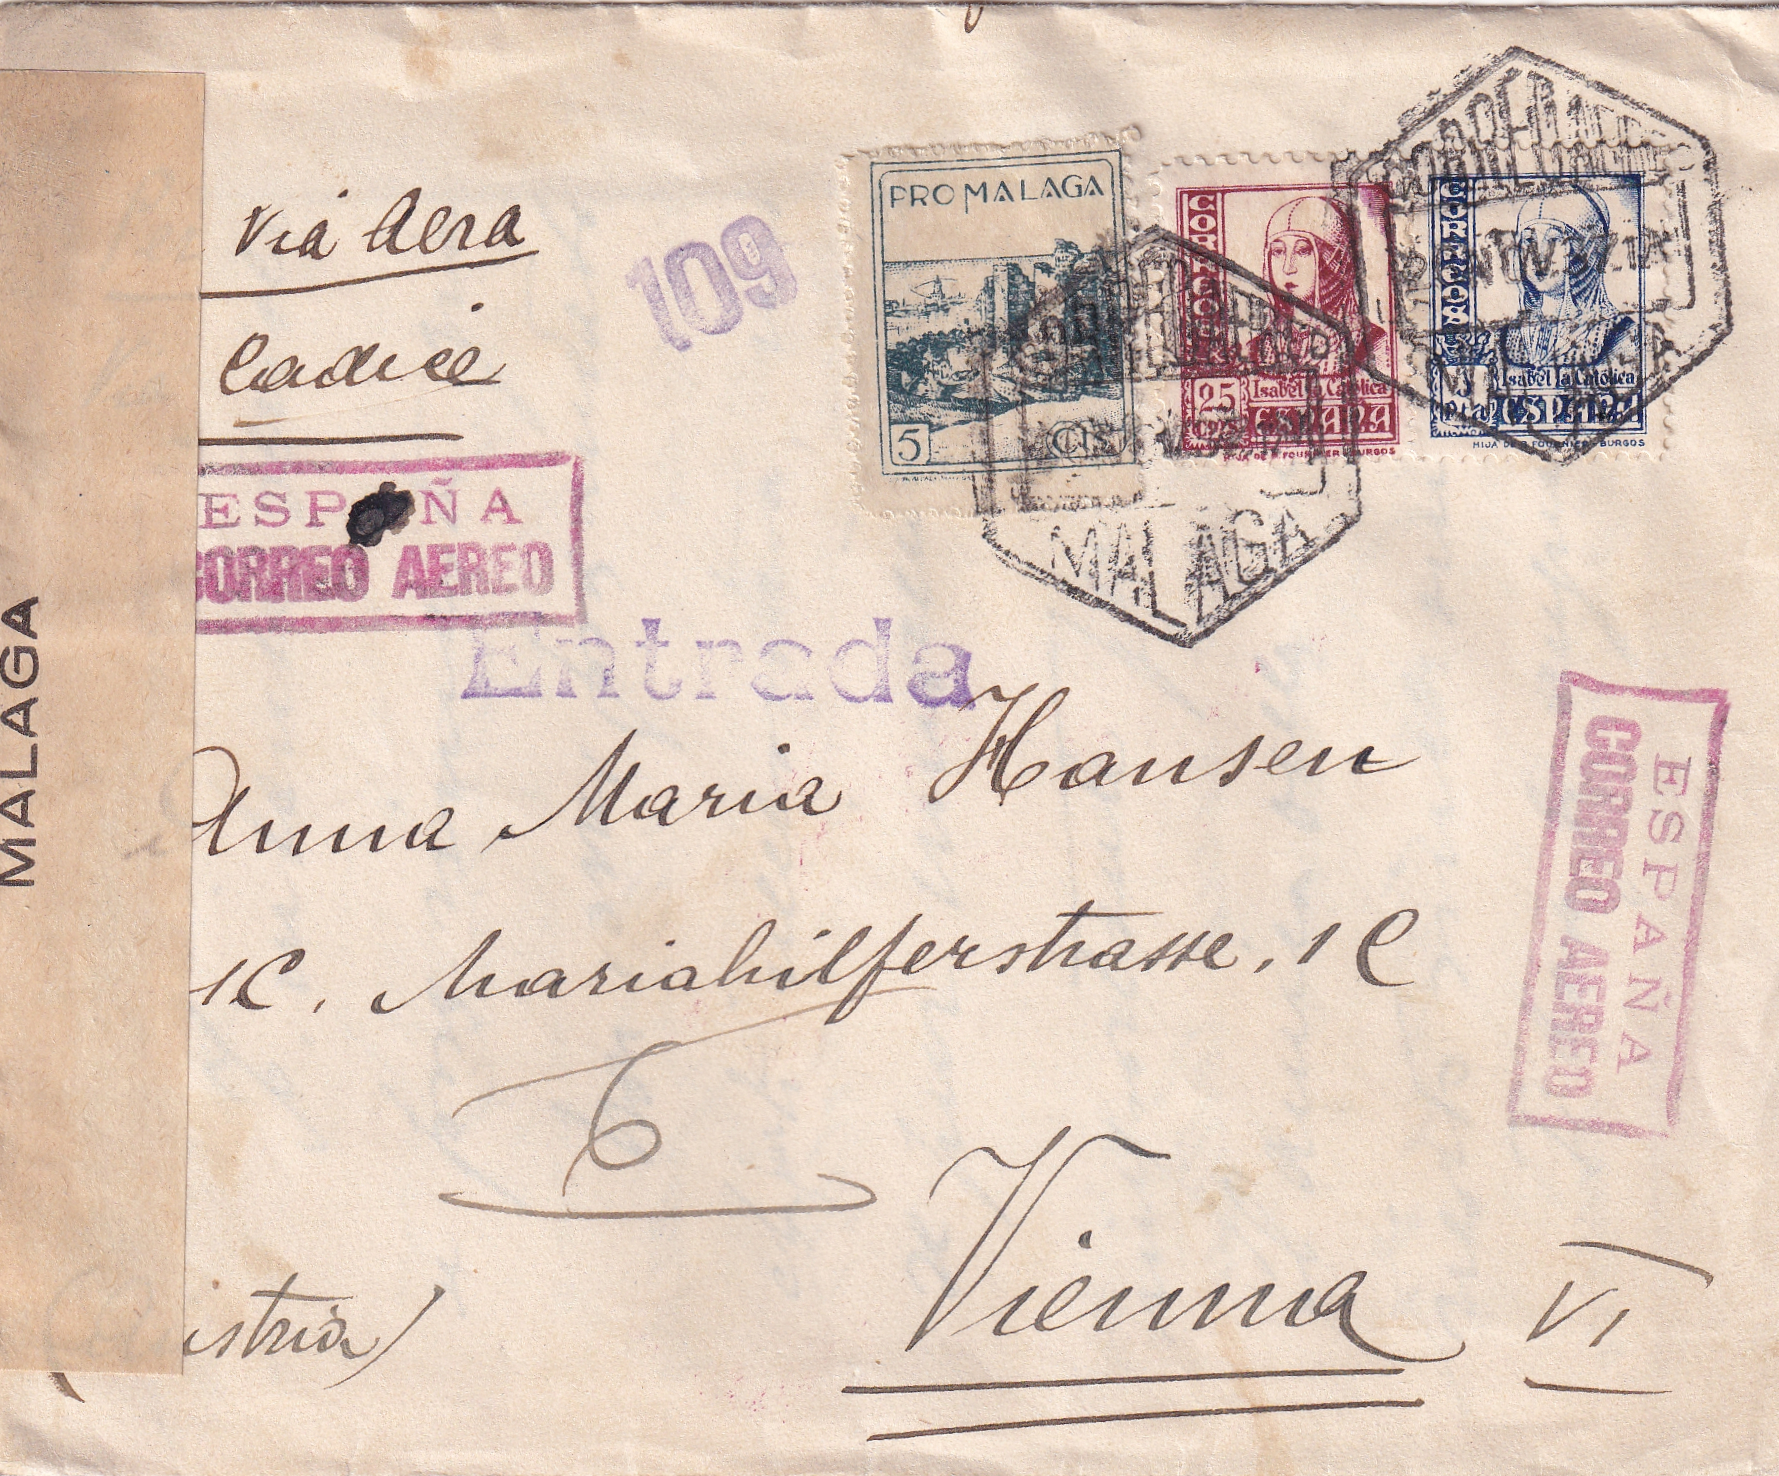 Via Aera
109
PRO MALAGA
5 Cts
CORREOS
25
CTS
Isabel la Católica
ESPAÑA
HIJA DE B. FOURNIER - BURGOS
CORREOS
pta
Isabel la Católica
ESPAÑA
HIJA DE B. FOURNIER - BURGOS
MALAGA
ESPAÑA
CORREO AEREO
Entrada
Anna Maria Hansen
Mariahilferstrasse, 1C
6
Vienna VI
ESPAÑA
CORREO AEREO
MALAGA